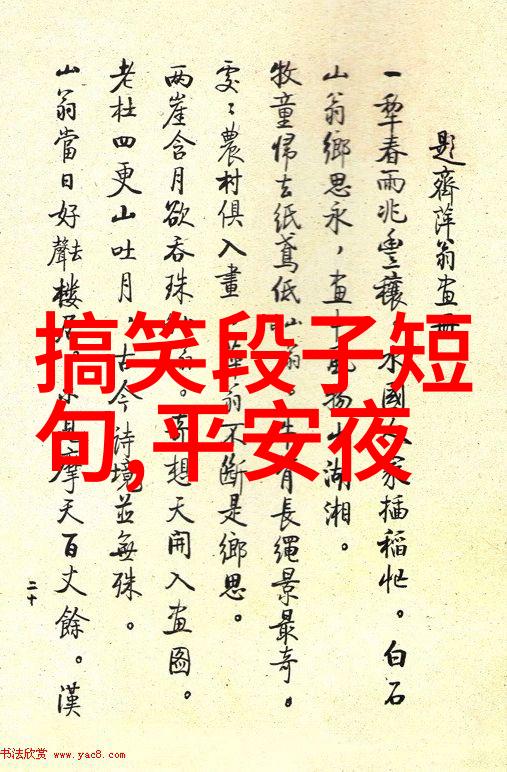 題齊萍翁畫
一犂春雨兆豐穰 水國 家插稻忙。白石
山翁鄉思永，畫 物 湖湘。
牧童歸去紙鳶低 山翁。牛背長繩景最奇。
處々農村俱入畫 萍翁不斷是鄉思。
两崖含月欲吞珠 。奇想天開入畫圖。
老杜四更山吐月，古今詩境並無殊。
山翁當日好去聲樓居。 見摩天百丈餘。漢
二十
搞笑段子短
句,平安夜
书法欣赏 www.yac8.com